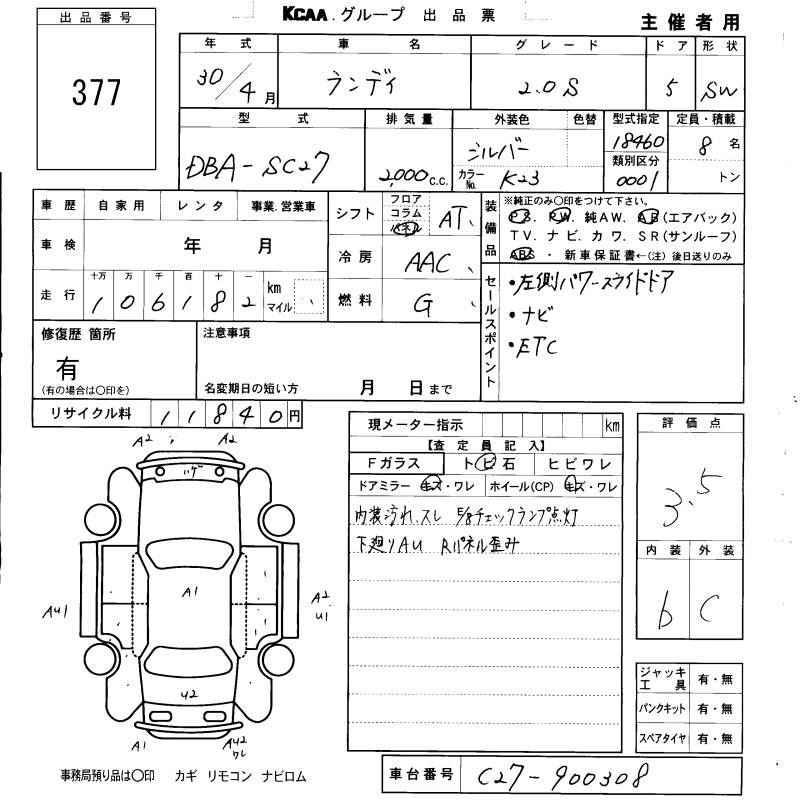 KCAA.グループ 出品票
主催者用
出品番号
377
年式 車名 グレード ドア 形状
30/4月 ランディ 2.0S 5 SW
型式 排気量 外装色 色替 型式指定 定員・積載
DBA-SC27 2,000c.c. シルバー 18460 8名
カラーNo. K23 類別区分 0001 トン
車歴 自家用 レンタ 事業.営業車
車検 年 月
走行 十万 千 百 十 一 km マイル
1 0 6 1 8 2
シフト フロア コラム パネル AT
冷房 AAC
燃料 G
装備品
※純正のみ〇印をつけて下さい。
P.S. P.W. 純AW. A.B(エアバック)
TV. ナビ. カワ. SR(サンルーフ)
ABS・新車保証書←(注)後日送りのみ
セールスポイント
・左側パワースライドドア
・ナビ
・ETC
修復歴 箇所
有
(有の場合は〇印を)
注意事項
名変期日の短い方 月 日まで
リサイクル料 11840円
現メーター指示 km
【査定員記入】
Fガラス トビ石 ヒビワレ
ドアミラー キズ・ワレ ホイール(CP) キズ・ワレ
内装汚れ、スレ E/gチェックランプ点灯
下廻りAU Rパネル歪み
評価点
3.5
内装 外装
b C
ジャッキ工具 有・無
パンクキット 有・無
スペアタイヤ 有・無
A2 A2
ハゲ
A1
AU1
A2
U1
U2
A1
AU2
ワレ
事務局預り品は〇印 カギ リモコン ナビロム
車台番号 C27-900308